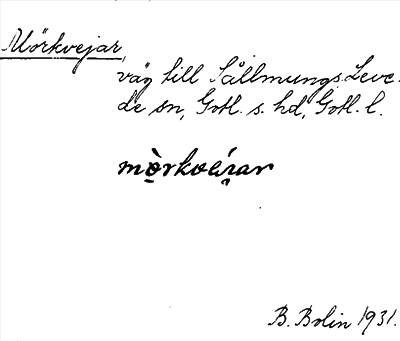 Mörkvejar,
väg till Sållmungs. Leve-
de sn, Gotl. s. hd, Gotl. l.
B. Bolin 1931.